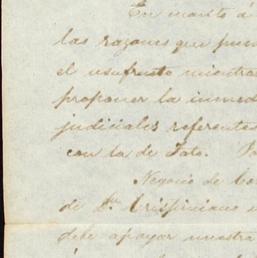 En cuanto á
las razones que
el usufructo mientras
proponer la inmed
judiciales referentes
con la de Soto.
Negocio de
de Dn Crispiniano
debe apoyar nuestra